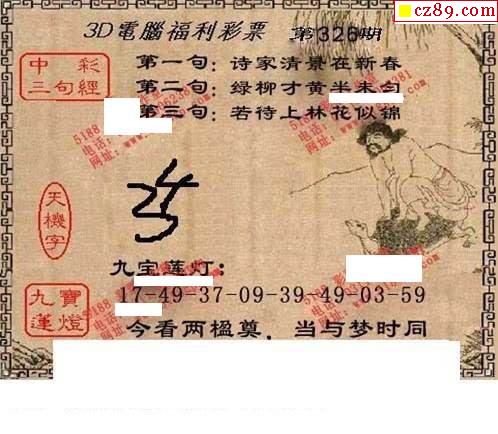 cz89.com
3D電腦福利彩票 第326期
中彩
三句經
第一句：诗家清景在新春
第二句：绿柳才黄半未匀
第三句：若待上林花似锦
天機字
九宝莲灯：
九寶
蓮燈
17-49-37-09-39-49-03-59
今看两楹奠，当与梦时同